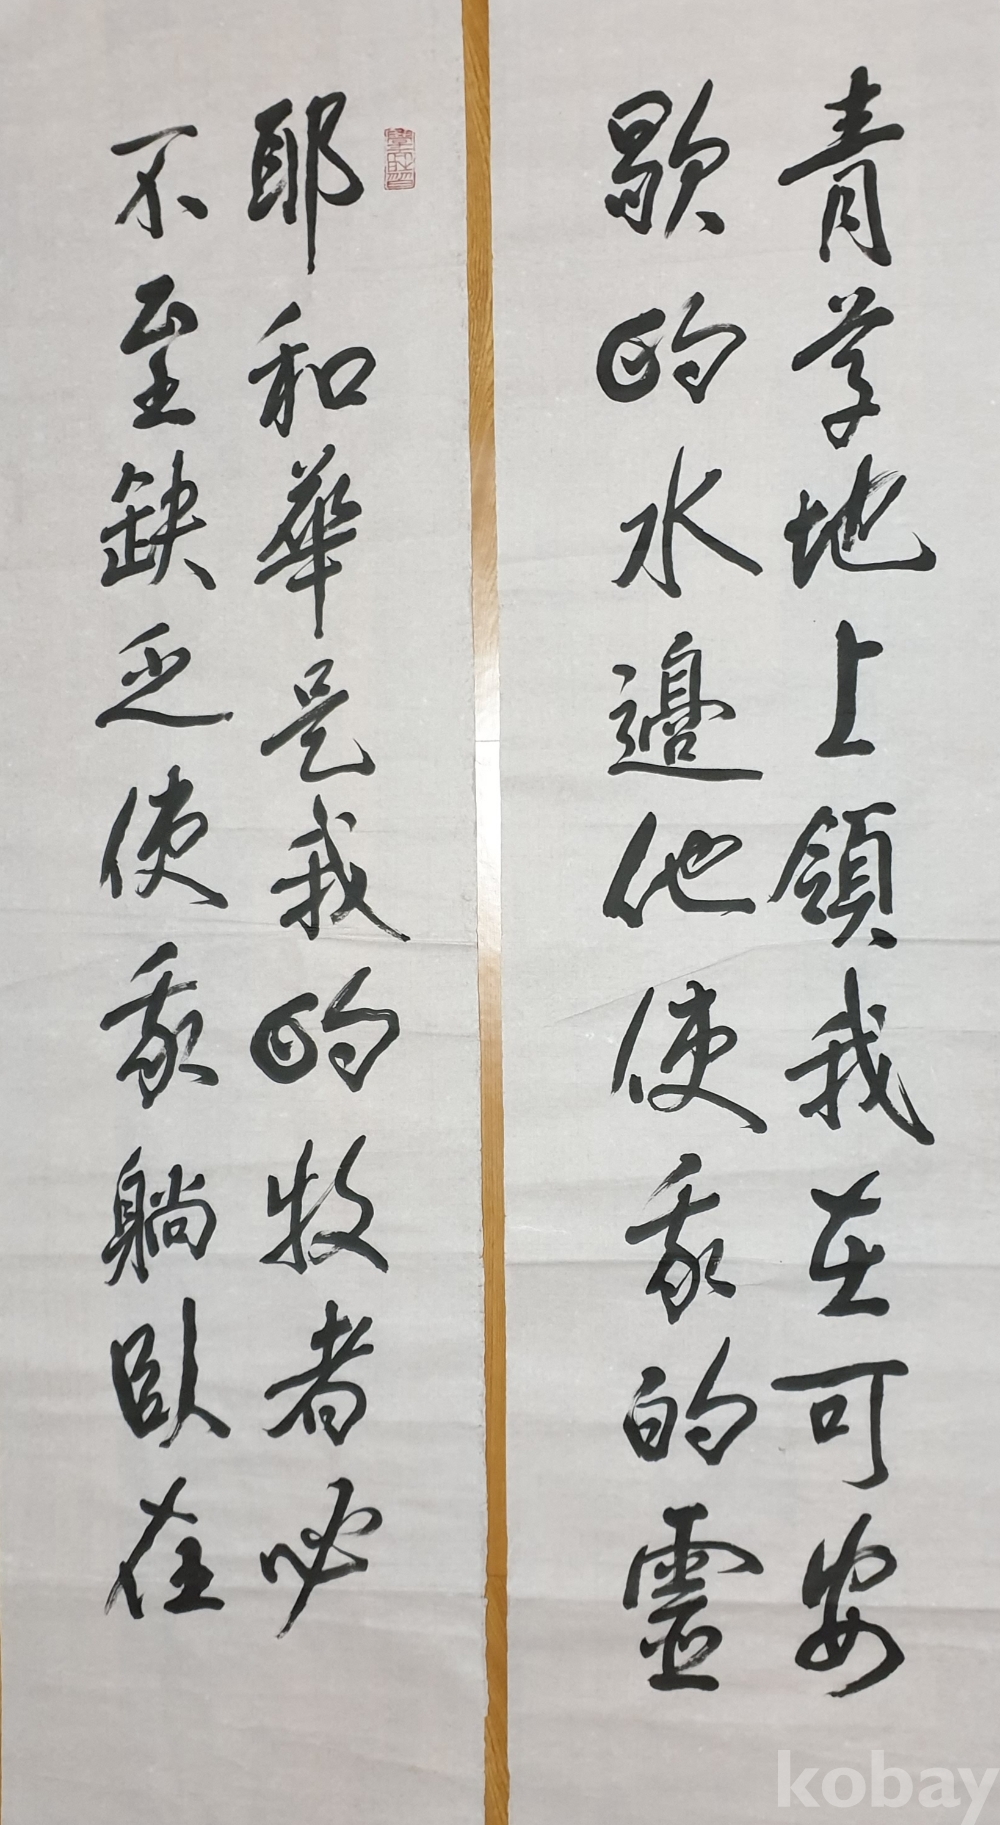 耶和華是我的牧者必
不至缺乏使我躺臥在
青草地上領我在可安
歇的水邊他使我的靈
kobay